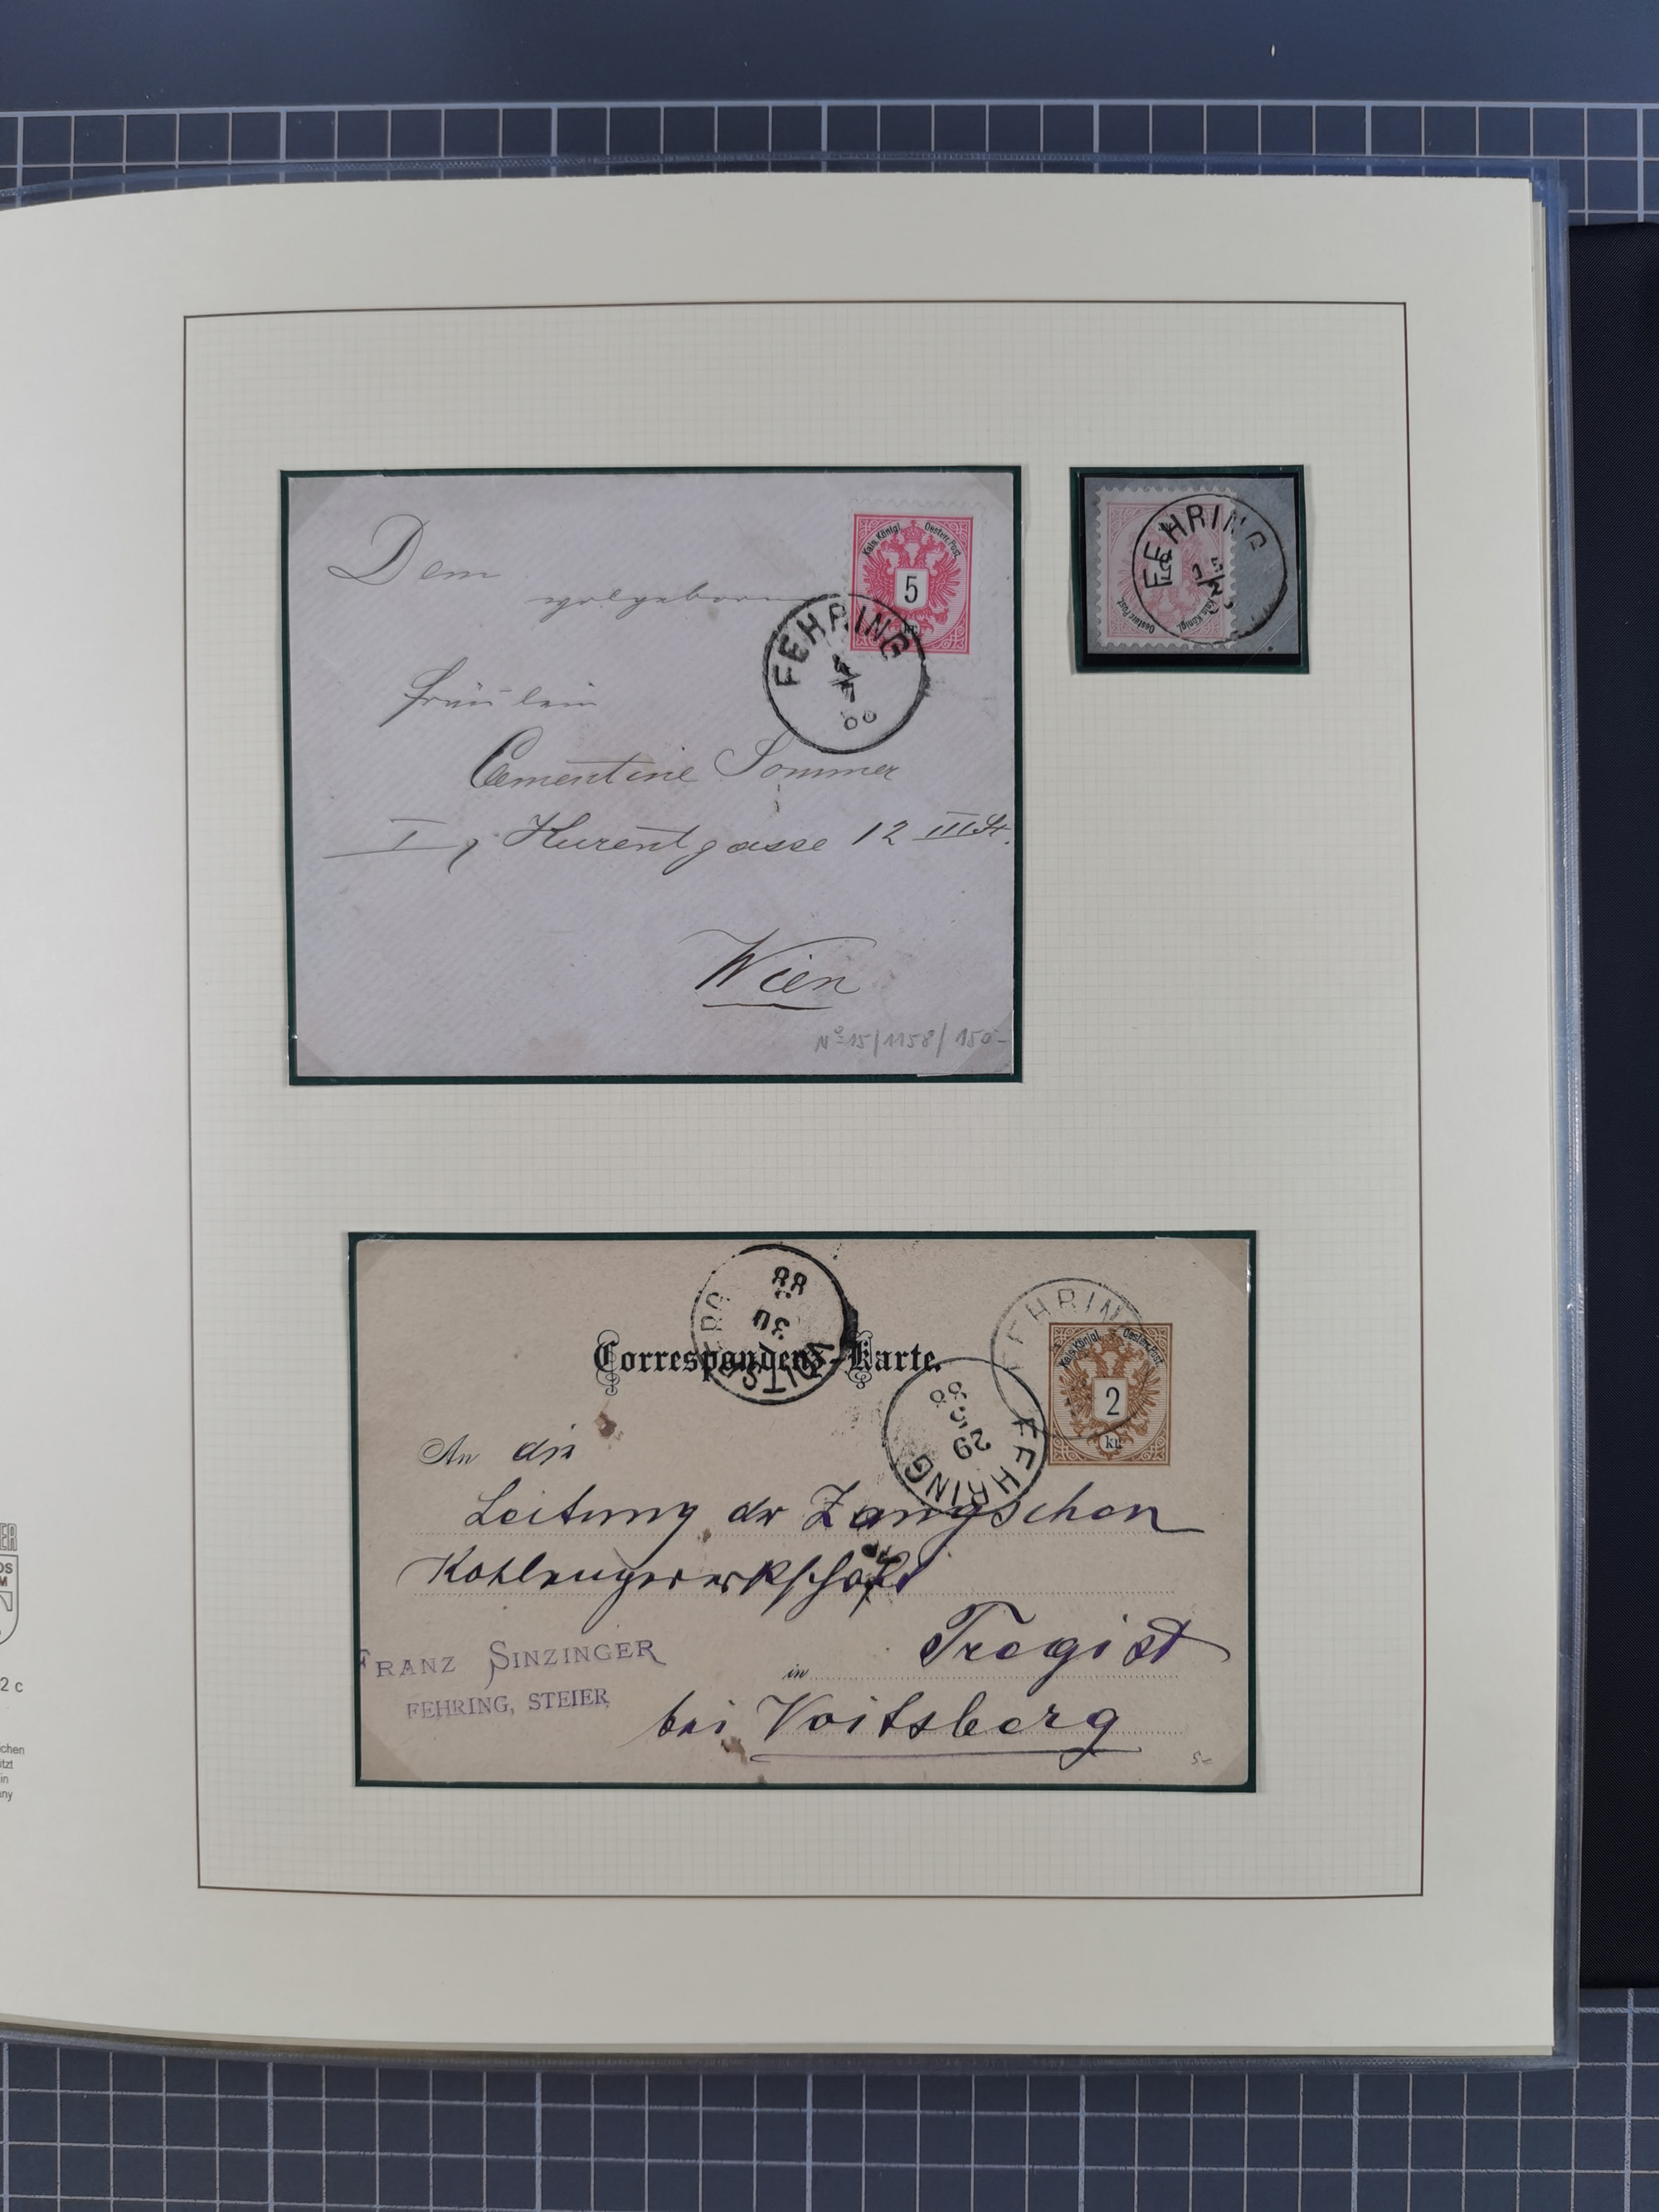 Dem
Kais. Königl. Oesterr. Post.
5
kr
FEHRING
4
7
Fräulein
Clementine Sommer
I, Kurentgasse 12 III St.
Wien
Nº 15/1158/150-
FEHRING
15
2
Oesterr. Post. Kais. Königl.
88
30
Correspondenz-Karte.
FEHRING
Kais. Königl. Oesterr. Post.
2
kr
FEHRING
29
5
88
An die
Leitung der Zangschen
Kohlengewerkschaft
FRANZ SINZINGER
FEHRING, STEIER
in Tregist
bei Voitsberg
5-
2 c